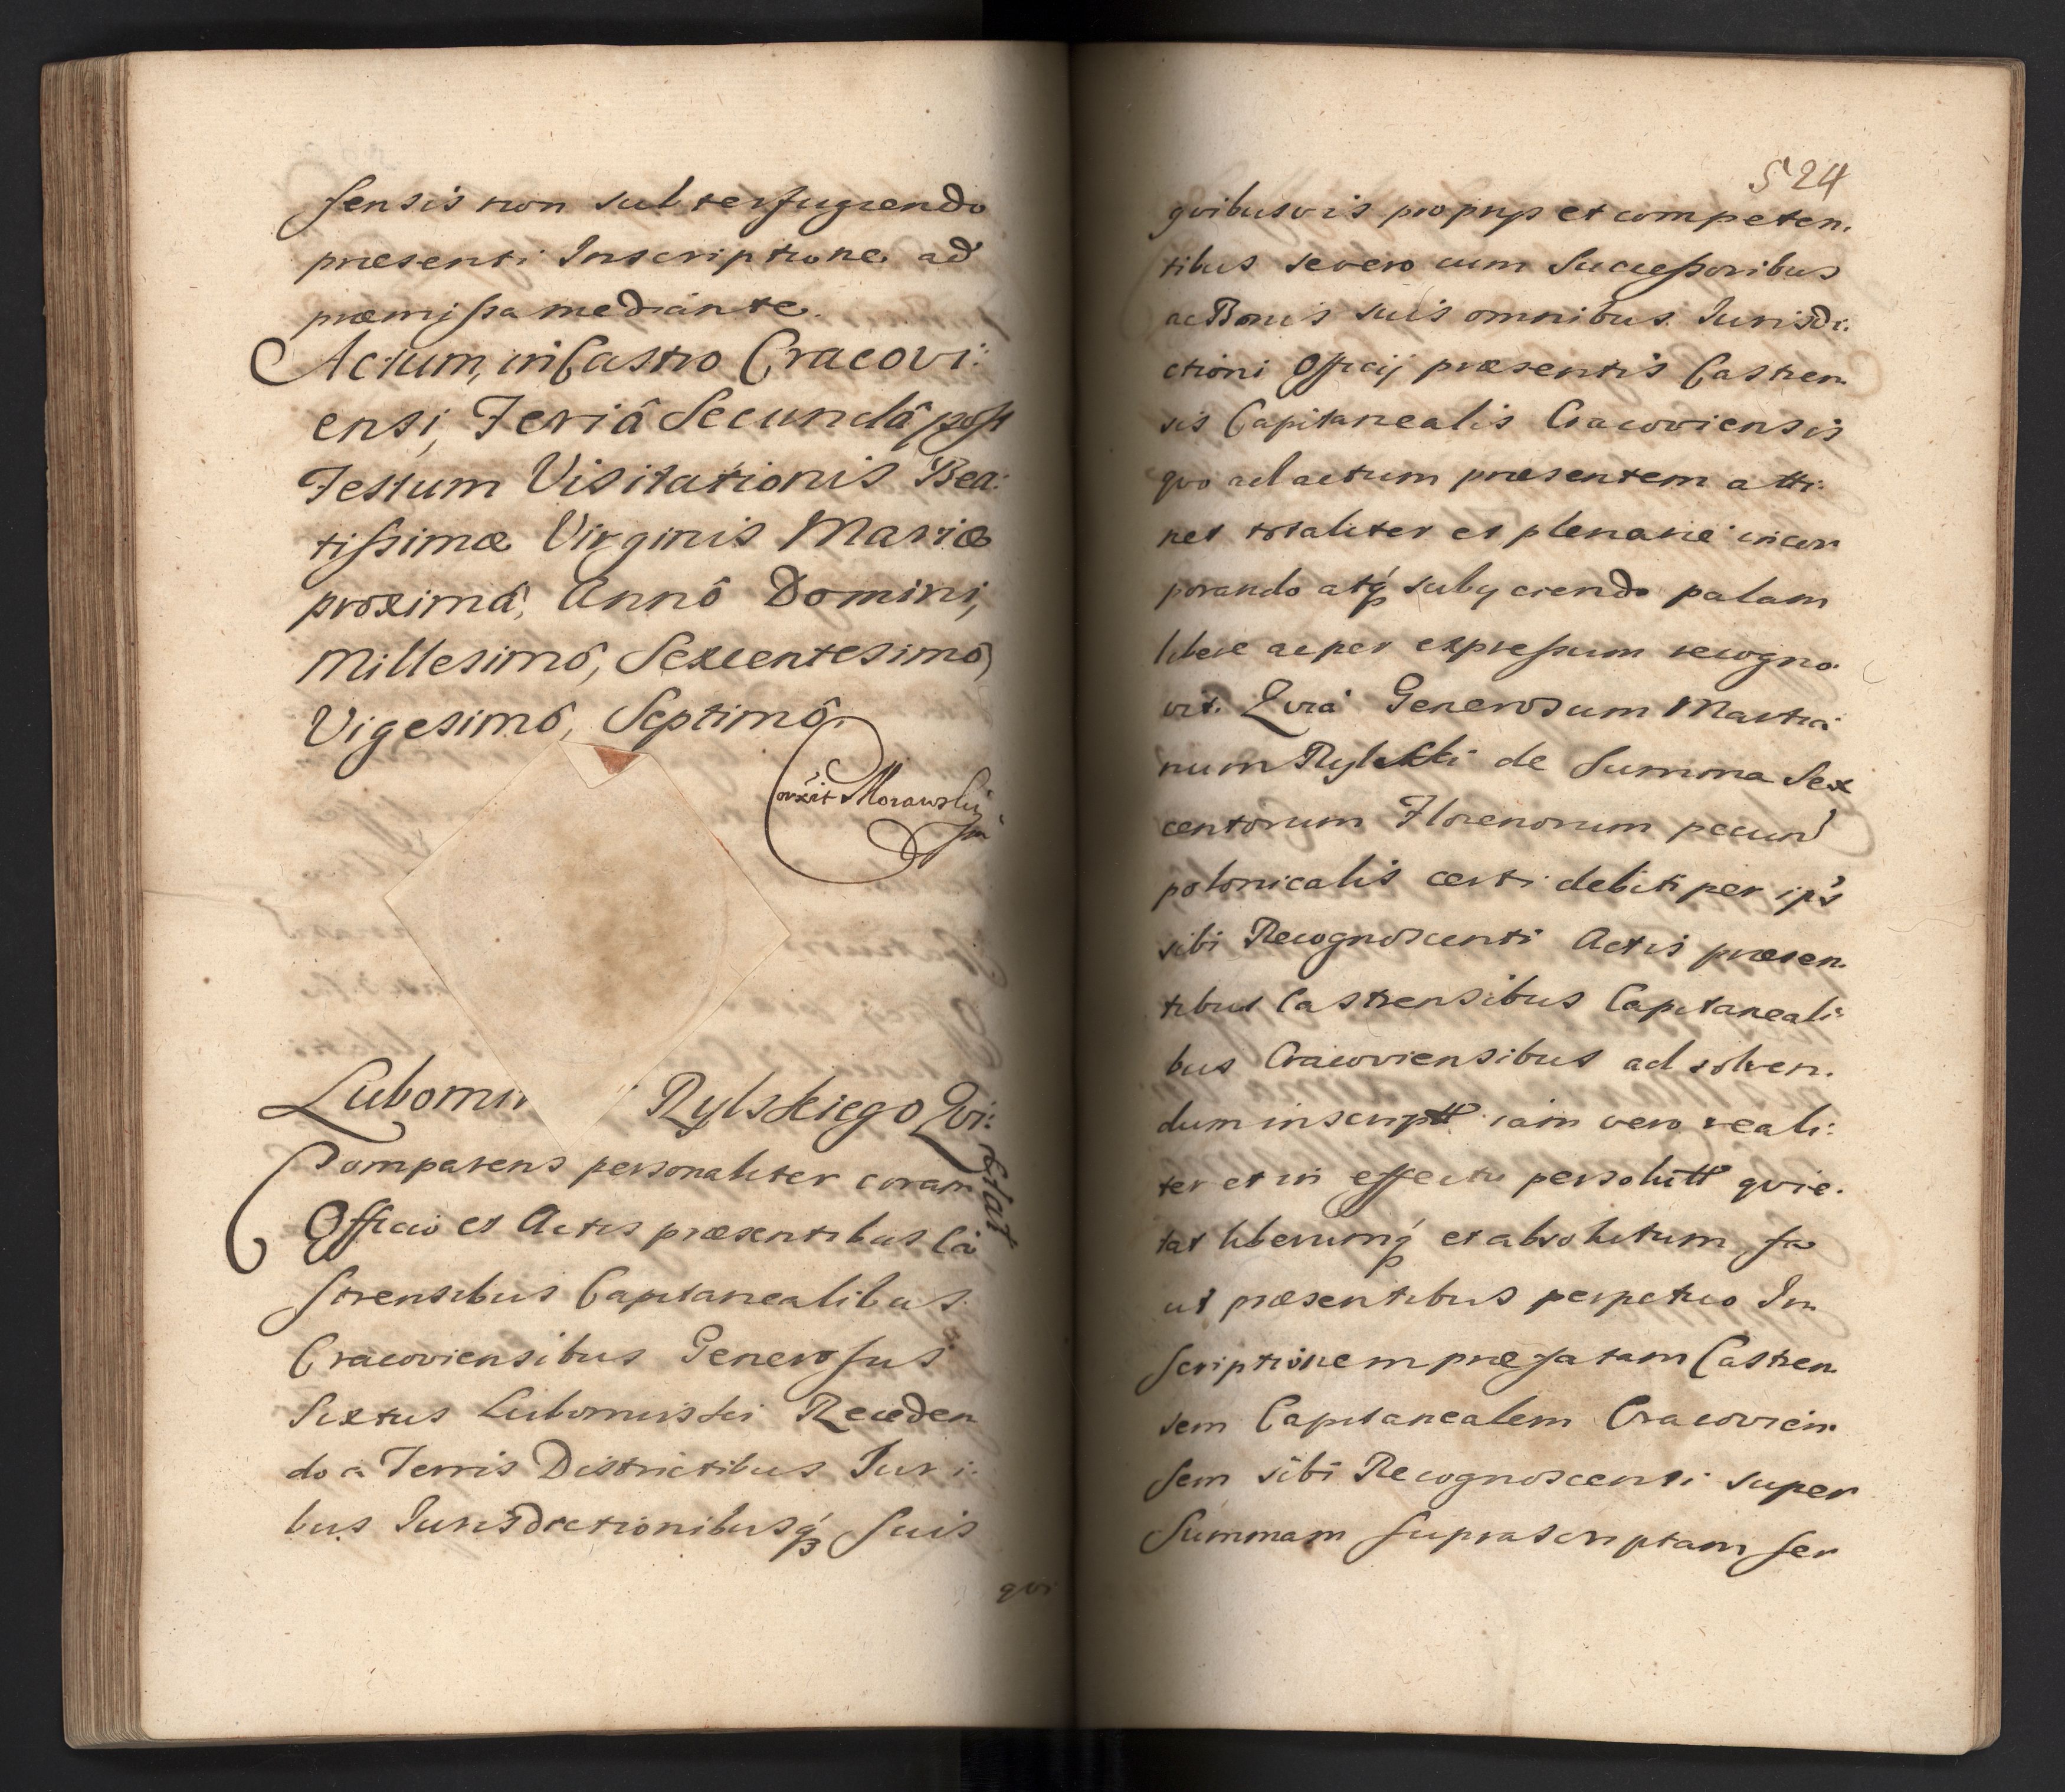 sensis non subterfugiendo
præsenti Inscriptione ad
præmissa mediante.
Actum, in Castro Cracovi:
ensi, Feriâ Secundâ post
Festum Visitationis Bea:
tissimæ Virginis Mariæ
proximâ, Annô Domini,
Millesimô, Sexcentesimô,
Vigesimô, Septimô.
Morawski
Lubomir Rylskiego Qvi:
etat
Comparens personaliter coram
Officio et Actis præsentibus Ca
strensibus Capitanealibus
Cracoviensibus Generosus
Sixtus Lubomirski Receden
do a Terris Districtibus Juri:
bus Jurisdictionibusq́ suis
qvi
524
qvibusvis proprijs et competen.
tibus severo cum Successoribus
ac Bonis suis omnibus Jurisdi:
ctioni Officij præsentis Castren
sis Capitanealis Cracoviensis
qvo ad actum præsentem atti:
net totaliter et plenarie incor
porando atq́ subijciendo palam
libere ac per expressum recogno
vit. Qvia Generosum Marti:
num Rylski de Summa Sex
centorum Florenorum pecun
polonicalis certi debiti per ip's
sibi Recognoscenti Actis præsen
tibus Castrensibus Capitaneali:
bus Cracoviensibus ad solven.
dum inscript iam vero reali:
ter et in effectu persolutt qvie.
tat liberumq́ et absolutum fa
cit præsentibus perpetuo In
scriptionem præfatam Castren
sem Capitanealem Cracovien
sem sibi Recognoscenti super
Summam suprascriptam ser